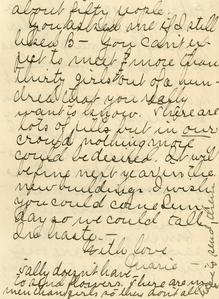 about fifty people.
You asked me if I still
liked B- You can't ex-
pect to meet more than
thirty girls out of a hun-
dred that you really
want to know. There are
lots of pills but in our
crowd nothing more
could be desired. It will
be fine next year in the
new buildings. I wish
you could come some
day so we could talk
In haste-
With love
Marie
Sally doesn't have
to send flowers. There are more
men than girls so they don't all